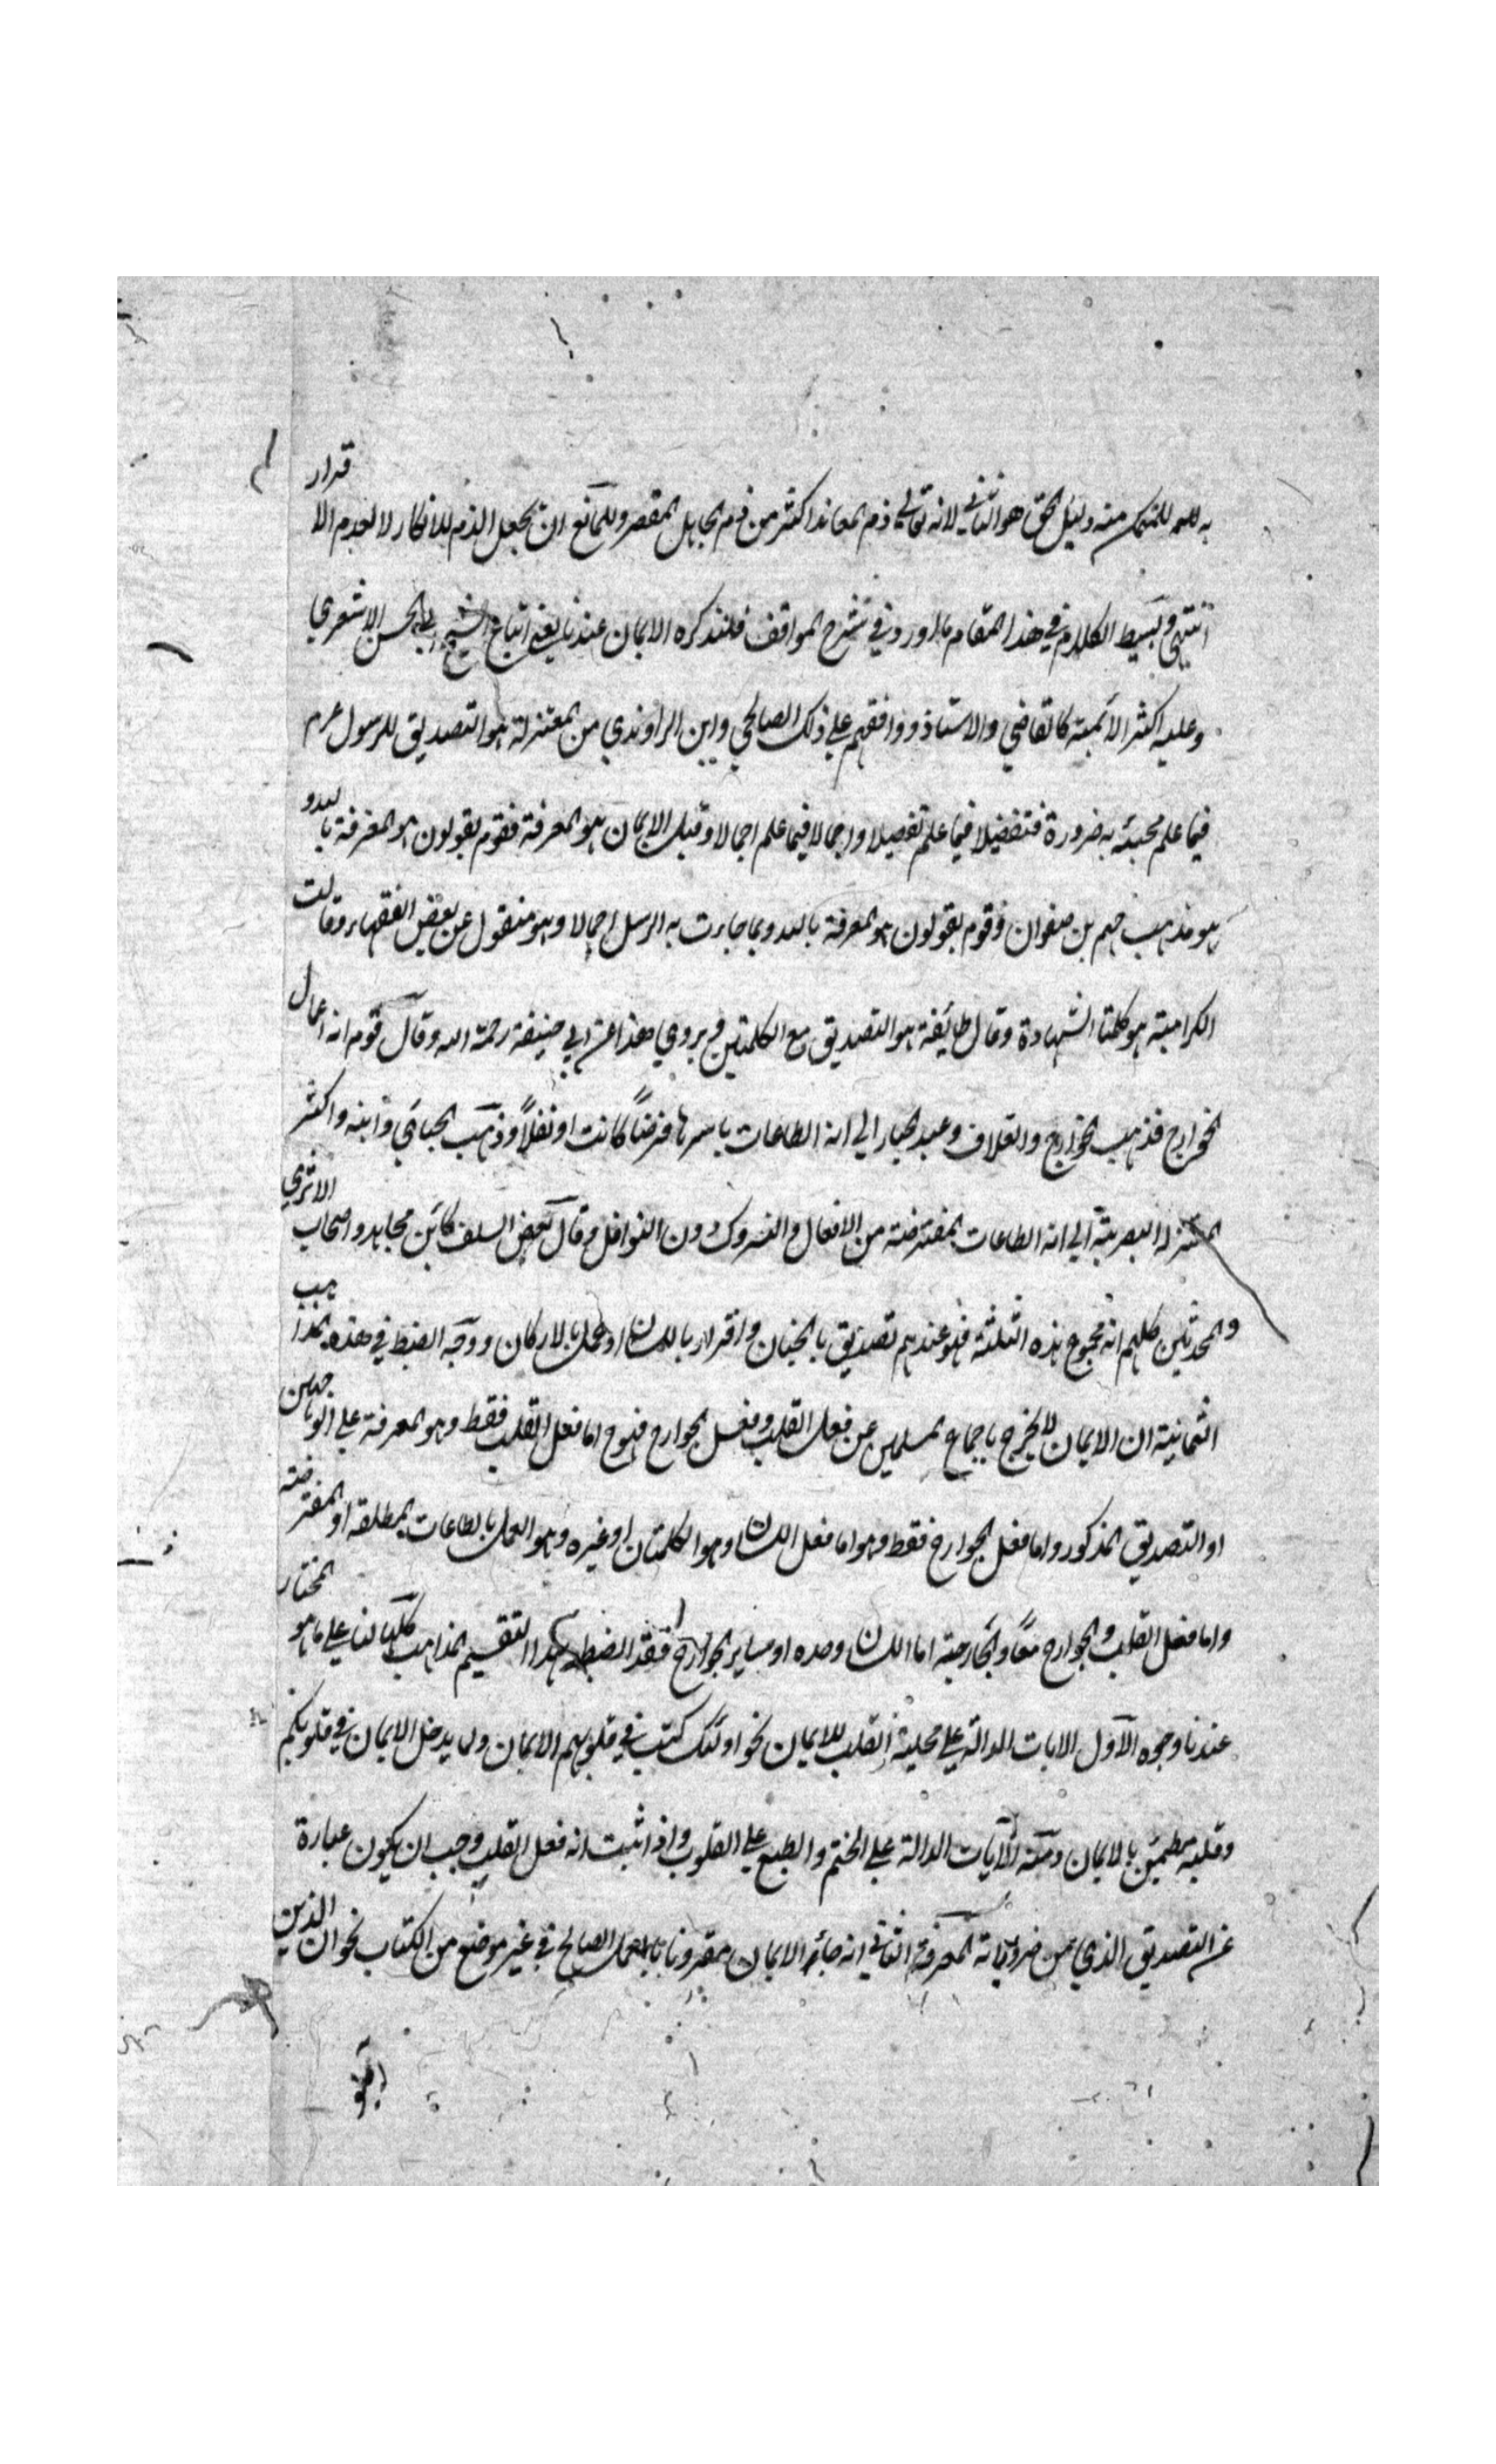 به للمتمكن منه وقيل الحق هو الثاني لانه تعالى ذم المعاند اكثر من ذم الجاهل المقصر وللمانع ان يجعل الذم للانكار لا لعدم الاقرار
انتهى وبسيط الكلام في هذا المقام ما اورد في شرح المواقف فلنذكره الايمان عندنا يعني اتباع الشيخ ابي الحسن الاشعري
وعليه اكثر الائمة كالقاضي والاستاذ ووافقهم على ذلك الصالحي وابن الراوندي من المعتزلة هو التصديق للرسول عم
فيما علم مجيئه به ضرورة فتفضيلا فيما علم تفصيلا واجمالا فيما علم اجمالا وقيل الايمان هو المعرفة فقوم يقولون هو المعرفة بالله و
هو مذهب جهم بن صفوان وقوم يقولون هو المعرفة بالله وبما جاءت به الرسل اجمالا وهو منقول عن بعض الفقهاء وقالت
الكرامية هو كلمتا الشهادة وقال طائفة هو التصديق مع الكلمتين ويروي هذا عن ابي حنيفة رحمة الله وقال قوم انه اعمال
الجوارح فذهب الخوارج والعلاف وعبد الجبار الي انه الطاعات باسرها فرضاً كانت او نفلاً وذهب الجبائي وابنه واكثر
المعتزلة البصرية الي انه الطاعات المفترضة من الافعال والتروك دون النوافل وقال بعض السلف كابن مجاهد واصحاب الاثري
والمحدثين كلهم انه مجموع هذه الثلثة فهو عندهم تصديق بالجنان واقرار باللسان وعمل بالاركان ووجه الضبط في هذه المذاهب
الثمانية ان الايمان لا يخرج باجماع المسلمين عن فعل القلب وفعل الجوارح فهو ح اما فعل القلب فقط وهو المعرفة على الوجهين
او التصديق المذكور واما فعل الجوارح فقط وهو اما فعل اللسان وهو الكلمتان او غيره وهو العمل بالطاعات المطلقه او المفترضة
واما فعل القلب والجوارح معاً والجارحة اما اللسان وحده او ساير الجوارح فقد انضبط بهذا التقسيم المذاهب كلها لنا على ما هو المختار
عندنا وجوه الآول الايات الدالة على محلية القلب للايمان نحو اولئك كتب في قلوبهم الايمان ولما يدخل الايمان في قلوبكم
وقلبه مطمئن بالايمان ومنه الآيات الدالة على الختم والطبع على القلوب واذا ثبت انه فعل القلب وجب ان يكون عبارة
عن التصديق الذي من ضرورياته المعرفة الثاني انه جاء الايمان مقرونا بالعمل الصالح في غير موضع من الكتاب نحو ان الذين
آمنو